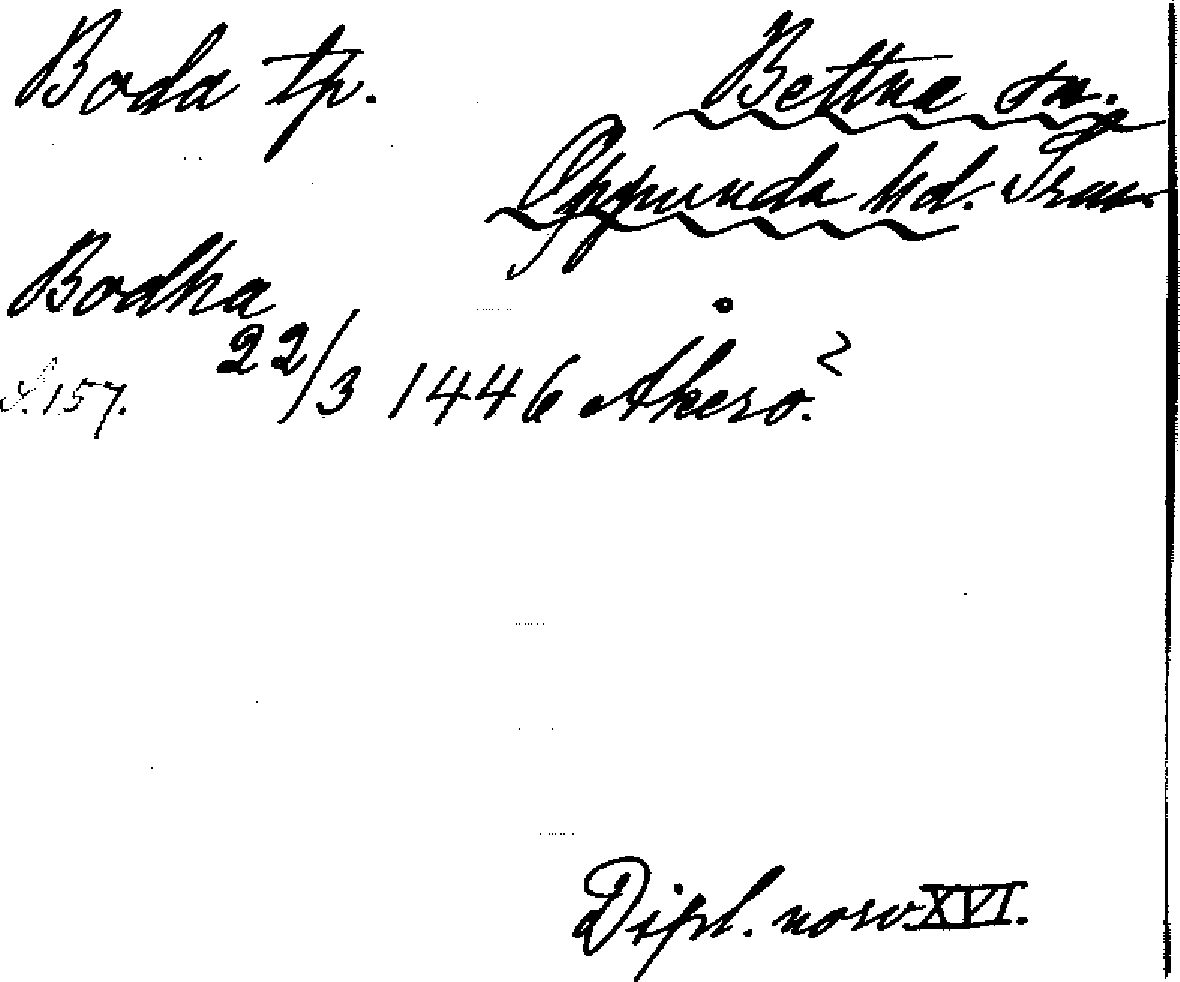 Boda tp. Bettna sn.
Oppunda hd. Srm.
Bodha
S. 157. 22/3 1446 Åkerö.
Dipl. norv. XVI.